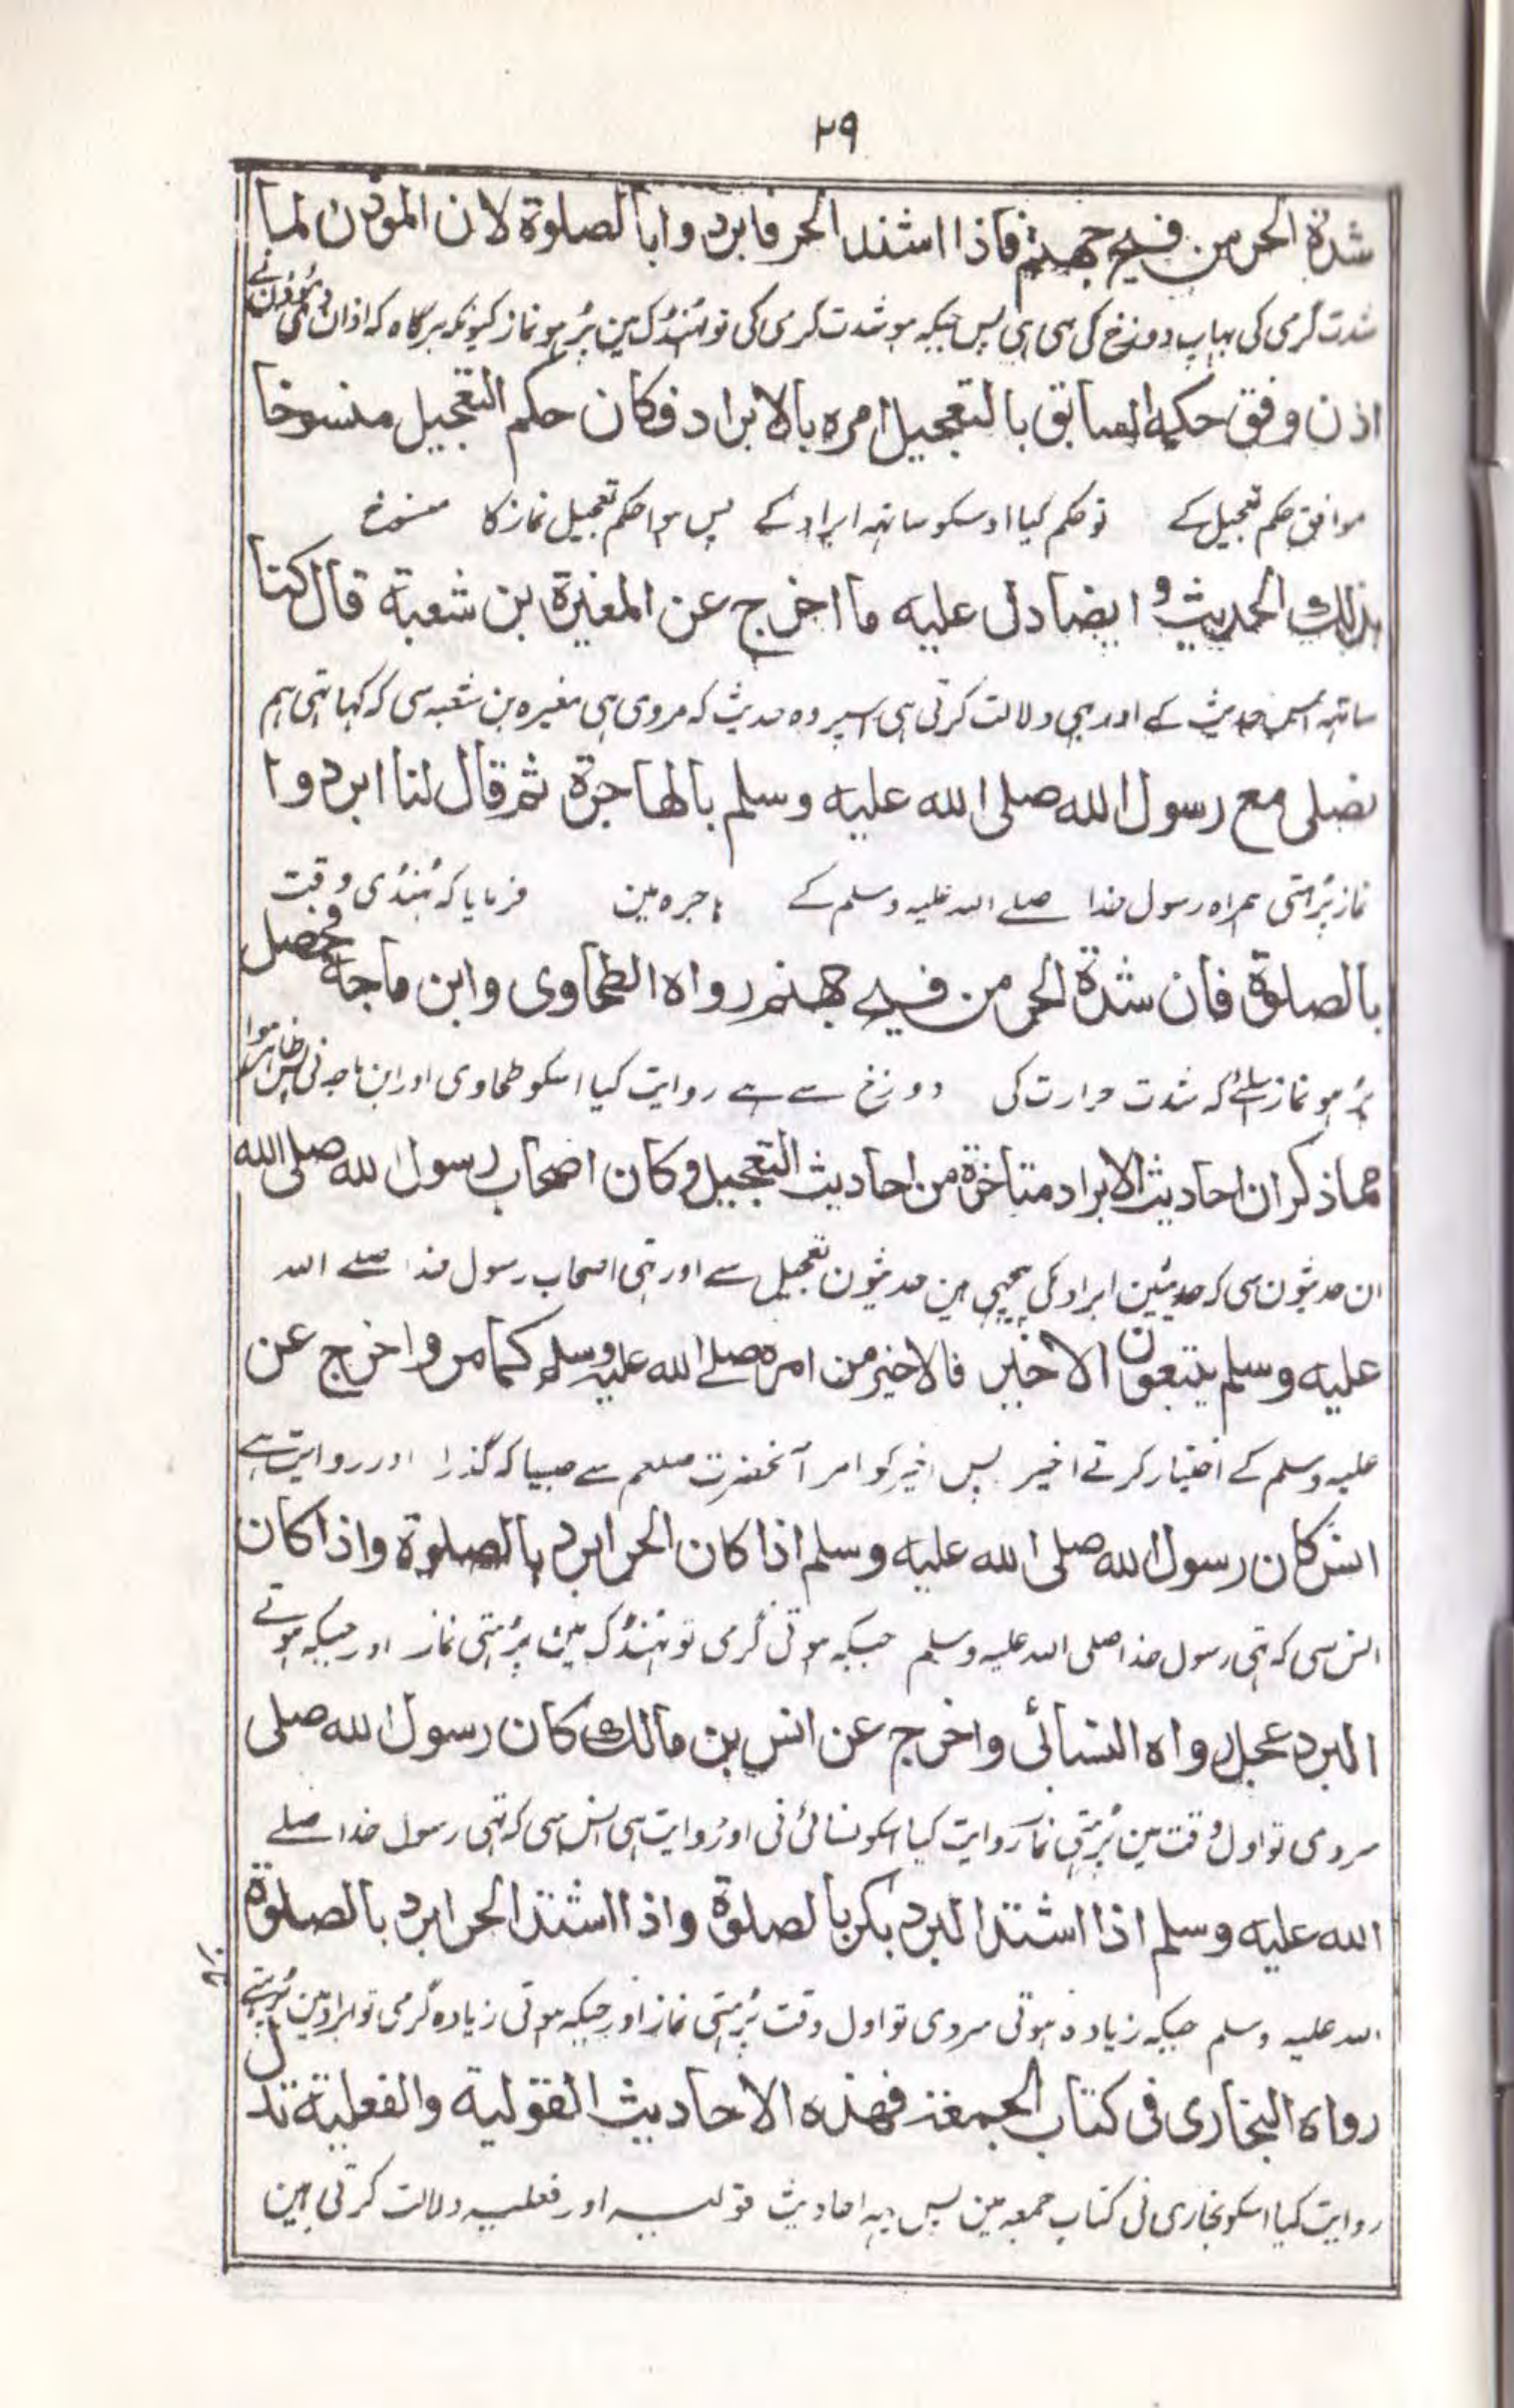 ٢٩
شدة الحر من فيح جهنم فاذا اشتد الحر فابردوا بالصلوة لان الموذن لما
شدت گرمی کی بہاپ دوزخ کی سی ہی پس جبکہ ہو شدت گرمی کی تو ٹہنڈک مین پڑہو نماز کیونکہ ہرگاہ کہ اذان دی مؤذن نے
اذن وفق حكمه السابق بالتعجيل امره بالابراد فكان حكم التعجيل منسوخا
موافق حکم تعجیل کے تو حکم کیا اوسکو ساتہہ ابراد کے پس ہوا حکم تعجیل نماز کا منسوخ
بذلك الحديث وايضا دل عليه ما اخرج عن المغيرة بن شعبة قال كنا
ساتہہ اس حدیث کے اور بہی دلالت کرتی ہی اسپر وہ حدیث کہ مروی ہی مغیرہ بن شعبہ سی کہ کہا تہی ہم
نصلى مع رسول الله صلى الله عليه وسلم بالهاجرة ثم قال لنا ابردوا
نماز پڑہتی ہمراہ رسول خدا صلے اللہ علیہ وسلم کے ہاجرہ مین فرمایا کہ ٹہنڈی وقت
بالصلوة فان شدة الحر من فيح جهنم رواه الطحاوى وابن ماجة فحصل
پڑہو نماز اسلئے کہ شدت حرارت کی دوزخ سے ہے روایت کیا اسکو طحاوی اور ابن ماجہ نی پس ظاہر ہوا
مما ذكر ان احاديث الابراد متاخرة من احاديث التعجيل وكان اصحاب رسول الله صلى الله
ان حدیثون سی کہ حدیثین ابراد کی پیچہی ہین حدیثون تعجیل سے اور تہی اصحاب رسول خدا صلے اللہ
عليه وسلم يتبعون الاخير فالاخير من امره صلے الله عليه وسلم كما مر واخرج عن
علیہ وسلم کے اختیار کرتے اخیر پس اخیر کو امر آنحضرت صلعم سے جیسا کہ گذرا اور روایت ہے
انس كان رسول الله صلى الله عليه وسلم اذا كان الحر ابرد بالصلوة واذا كان
انس سی کہ تہی رسول خدا صلی اللہ علیہ وسلم جبکہ ہوتی گرمی تو ٹہنڈک مین پڑہتی نماز اور جبکہ ہوتے
البرد عجل رواه النسائى واخرج عن انس بن مالك كان رسول الله صلى
سردی تو اول وقت مین پڑہتی نماز روایت کیا اسکو نسائی نی اور روایت ہی انس سی کہ تہی رسول خدا صلے
الله عليه وسلم اذا اشتد البرد بكر بالصلوة واذا اشتد الحر ابرد بالصلوة
اللہ علیہ وسلم جبکہ زیادہ ہوتی سردی تو اول وقت پڑہتی نماز اور جبکہ ہوتی زیادہ گرمی تو ابراد مین پڑہتے
رواه البخارى فى كتاب الجمعة فهذه الاحاديث القولية والفعلية تدل
روایت کیا اسکو بخاری نی کتاب جمعہ مین پس یہہ احادیث قولیہ اور فعلیہ دلالت کرتی ہین